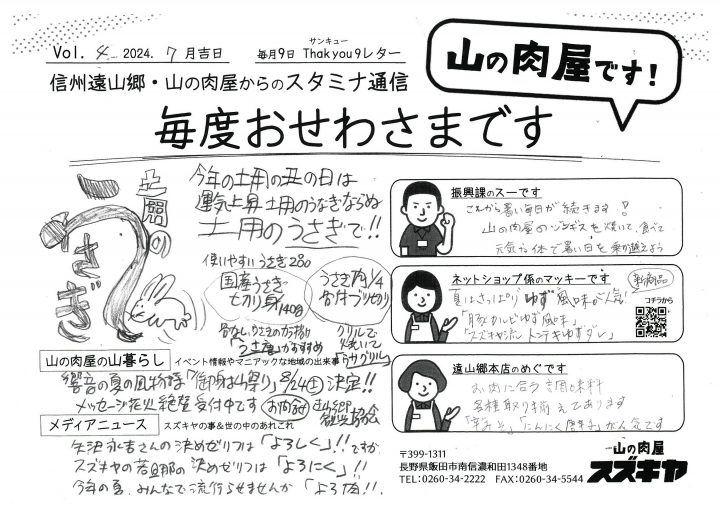 Vol. 4 2024. 7 月吉日
毎月9日 Thakyou9レター
サンキュー
信州遠山郷・山の肉屋からのスタミナ通信
山の肉屋です!
毎度おせわさまです
土用の
うさぎ
今年の土用の丑の日は
運気上昇 土用のうなぎならぬ
土用のうさぎで!!
使いやすいうさぎ2品
国産うさぎ
切り身/140g
うさぎ肉1/4
骨付ブツ切り
がおすすめ
グリルで
焼いて
振興課のスーです
これから暑い毎日が続きます!
山の肉屋のジンギスを焼いて、食べて
元気な体で暑い日を乗り越えよう
ネットショップ係のマッキーです
新商品
夏はさっぱりゆず風味が人気!
コチラから
「豚カルビゆず風味」
遠山郷本店のめぐです
お肉に合う
各種取り揃えてあります
が人気です
山の肉屋の山暮らし
イベント情報やマニアックな地域の出来事
響音の夏の風物詩「御射山祭り」8/24(土)決定!!
メッセージ花火絶賛受付中です
お問合せ
メディアニュース
スズキヤの事&世の中のあれこれ
矢沢永吉さんの決めゼリフは「よろしく」!!ですが
スズキヤの若旦那の決めゼリフは「よろにく」!!
今年の夏、みんなで流行らせませんか「よろ肉」!!
〒399-1311
長野県飯田市南信濃和田1348番地
TEL:0260-34-2222 FAX:0260-34-5544
山の肉屋
スズキヤ